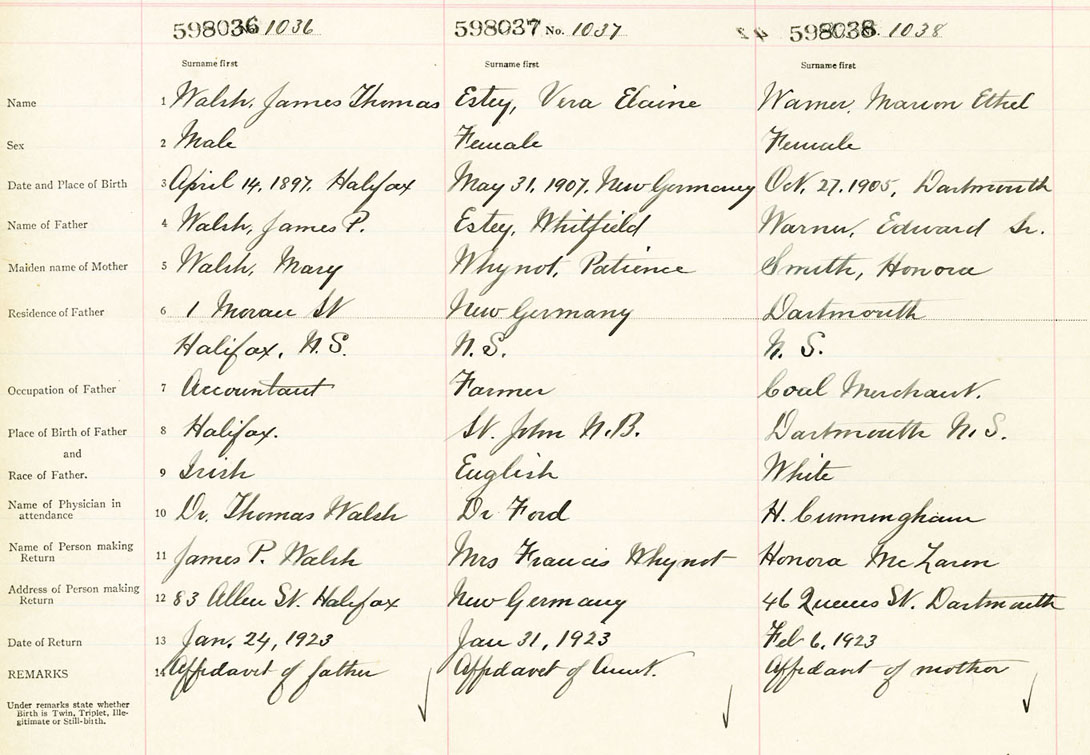 598036 1036 598037 No. 1037 598038 1038
Surname first Surname first Surname first
Name 1 Walsh, James Thomas Estey, Vera Elaine Warner, Marion Ethel
Sex 2 Male Female Female
Date and Place of Birth 3 April 14, 1897, Halifax May 31, 1907, New Germany Oct. 27, 1905, Dartmouth
Name of Father 4 Walsh, James P. Estey, Whitfield Warner, Edward Sr.
Maiden name of Mother 5 Walsh, Mary Whynot, Patience Smith, Honora
Residence of Father 6 1 Moran St New Germany Dartmouth
Halifax, N.S. N.S. N.S.
Occupation of Father 7 Accountant Farmer Coal Merchant.
Place of Birth of Father 8 Halifax. St. John N.B. Dartmouth N.S.
and
Race of Father. 9 Irish English White
Name of Physician in
attendance 10 Dr. Thomas Walsh Dr Ford H. Cunningham
Name of Person making
Return 11 James P. Walsh Mrs Francis Whynot Honora McLaren
Address of Person making
Return 12 83 Allen St. Halifax New Germany 46 Queens St. Dartmouth
Date of Return 13 Jan. 24, 1923 Jan 31, 1923 Feb 6, 1923
REMARKS 14 Affidavit of father Affidavit of Aunt. Affidavit of mother
Under remarks state whether
Birth is Twin, Triplet, Ille-
gitimate or Still-birth.